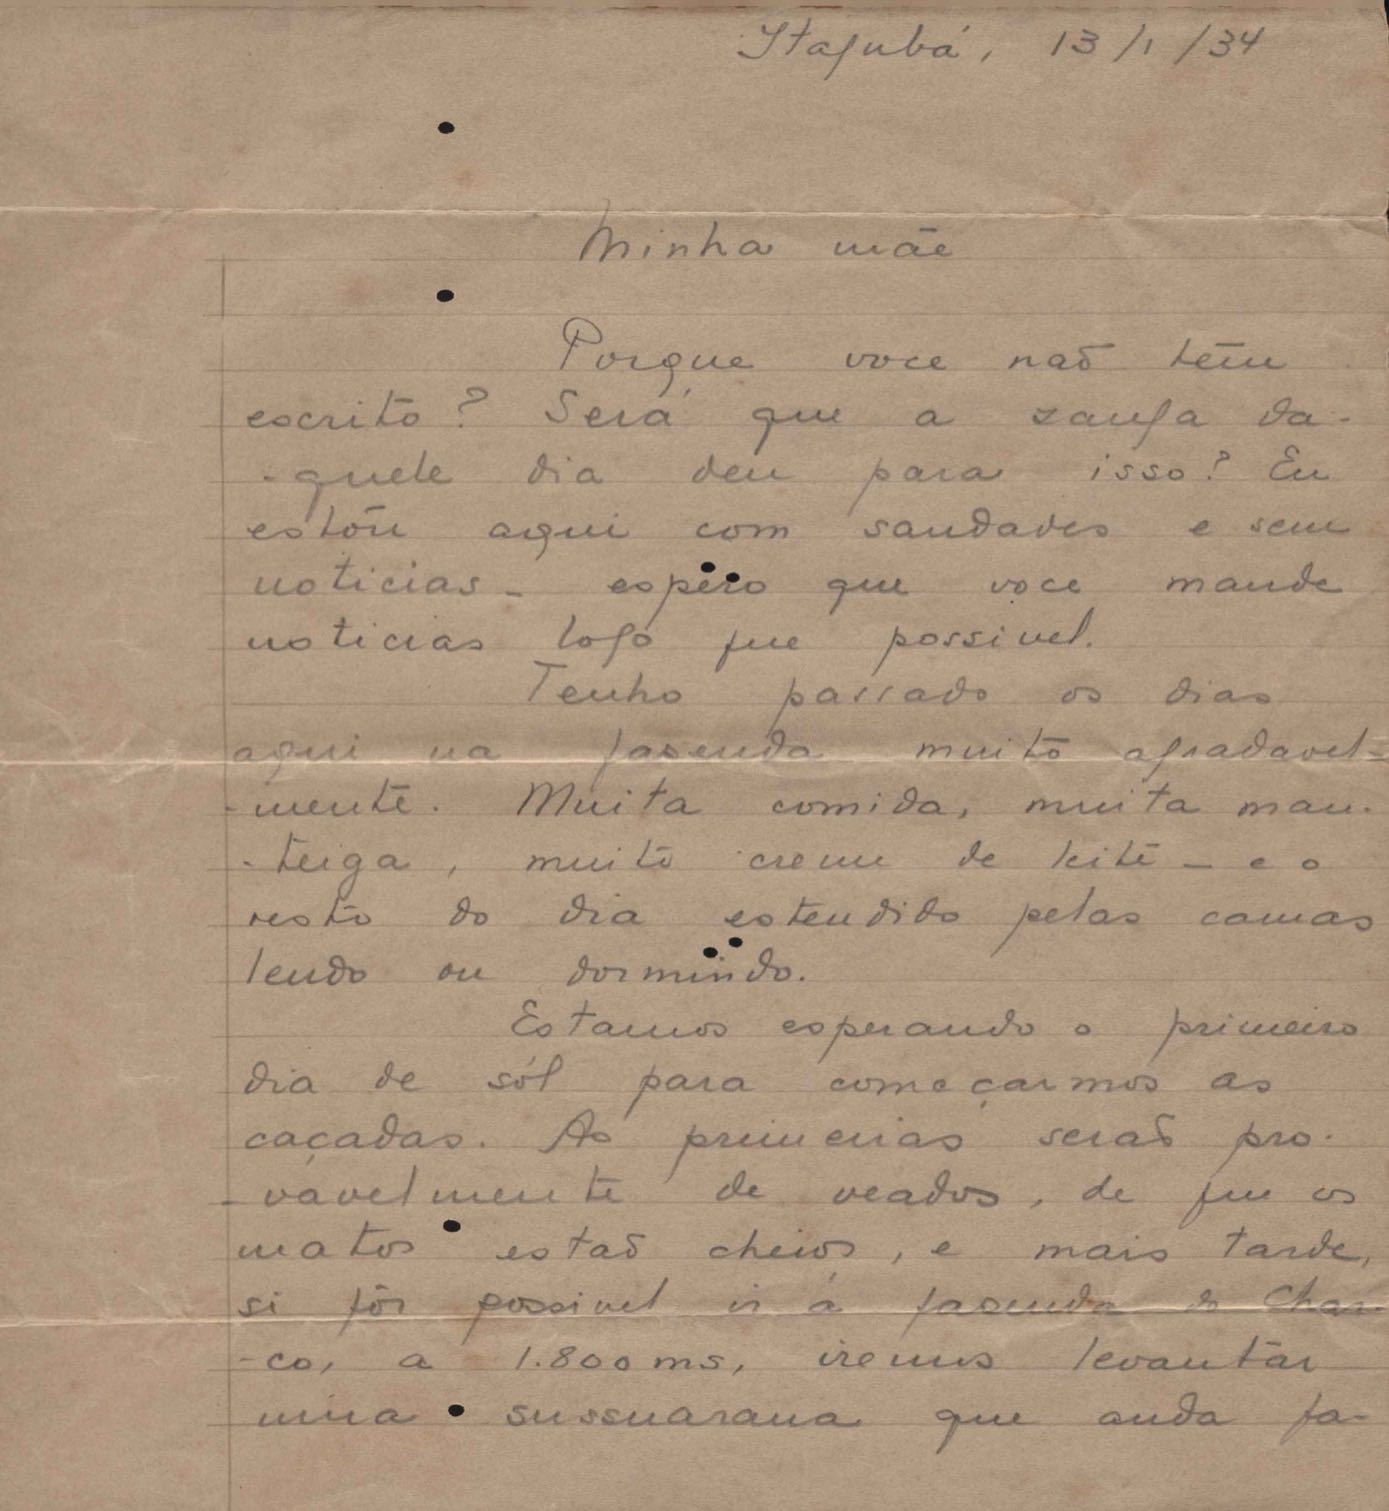 Itajubá, 13/1/34
Minha mãe
Porque voce naõ tem
escrito? Será que a zanga da-
-quele dia deu para isso? Eu
estou aqui com saudades e sem
noticias - espero que voce mande
noticias logo que possivel.
Tenho passado os dias
aqui na fazenda muito agradavel-
-mente. Muita comida, muita man-
-teiga, muito creme de leite - e o
resto do dia estendido pelas camas
lendo ou dormindo.
Estamos esperando o primeiro
dia de sól para começarmos as
caçadas. As primeiras seraõ pro-
-vavelmente de veados, de que os
matos estaõ cheios, e mais tarde,
si fôr possivel ir á fazenda do Char-
-co, a 1.800 ms, iremos levantar
uma sussuarana que anda fa-